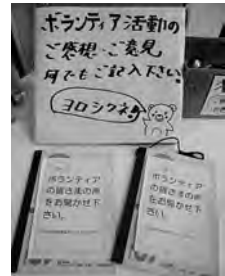 ボランティア活動の
ご感想・ご意見
何でもご記入下さい。
ヨロシクネ
ボランティア
の皆さまの声
をお聞かせ下
さい。
ボランティア
の皆さまの声
をお聞かせ下
さい。